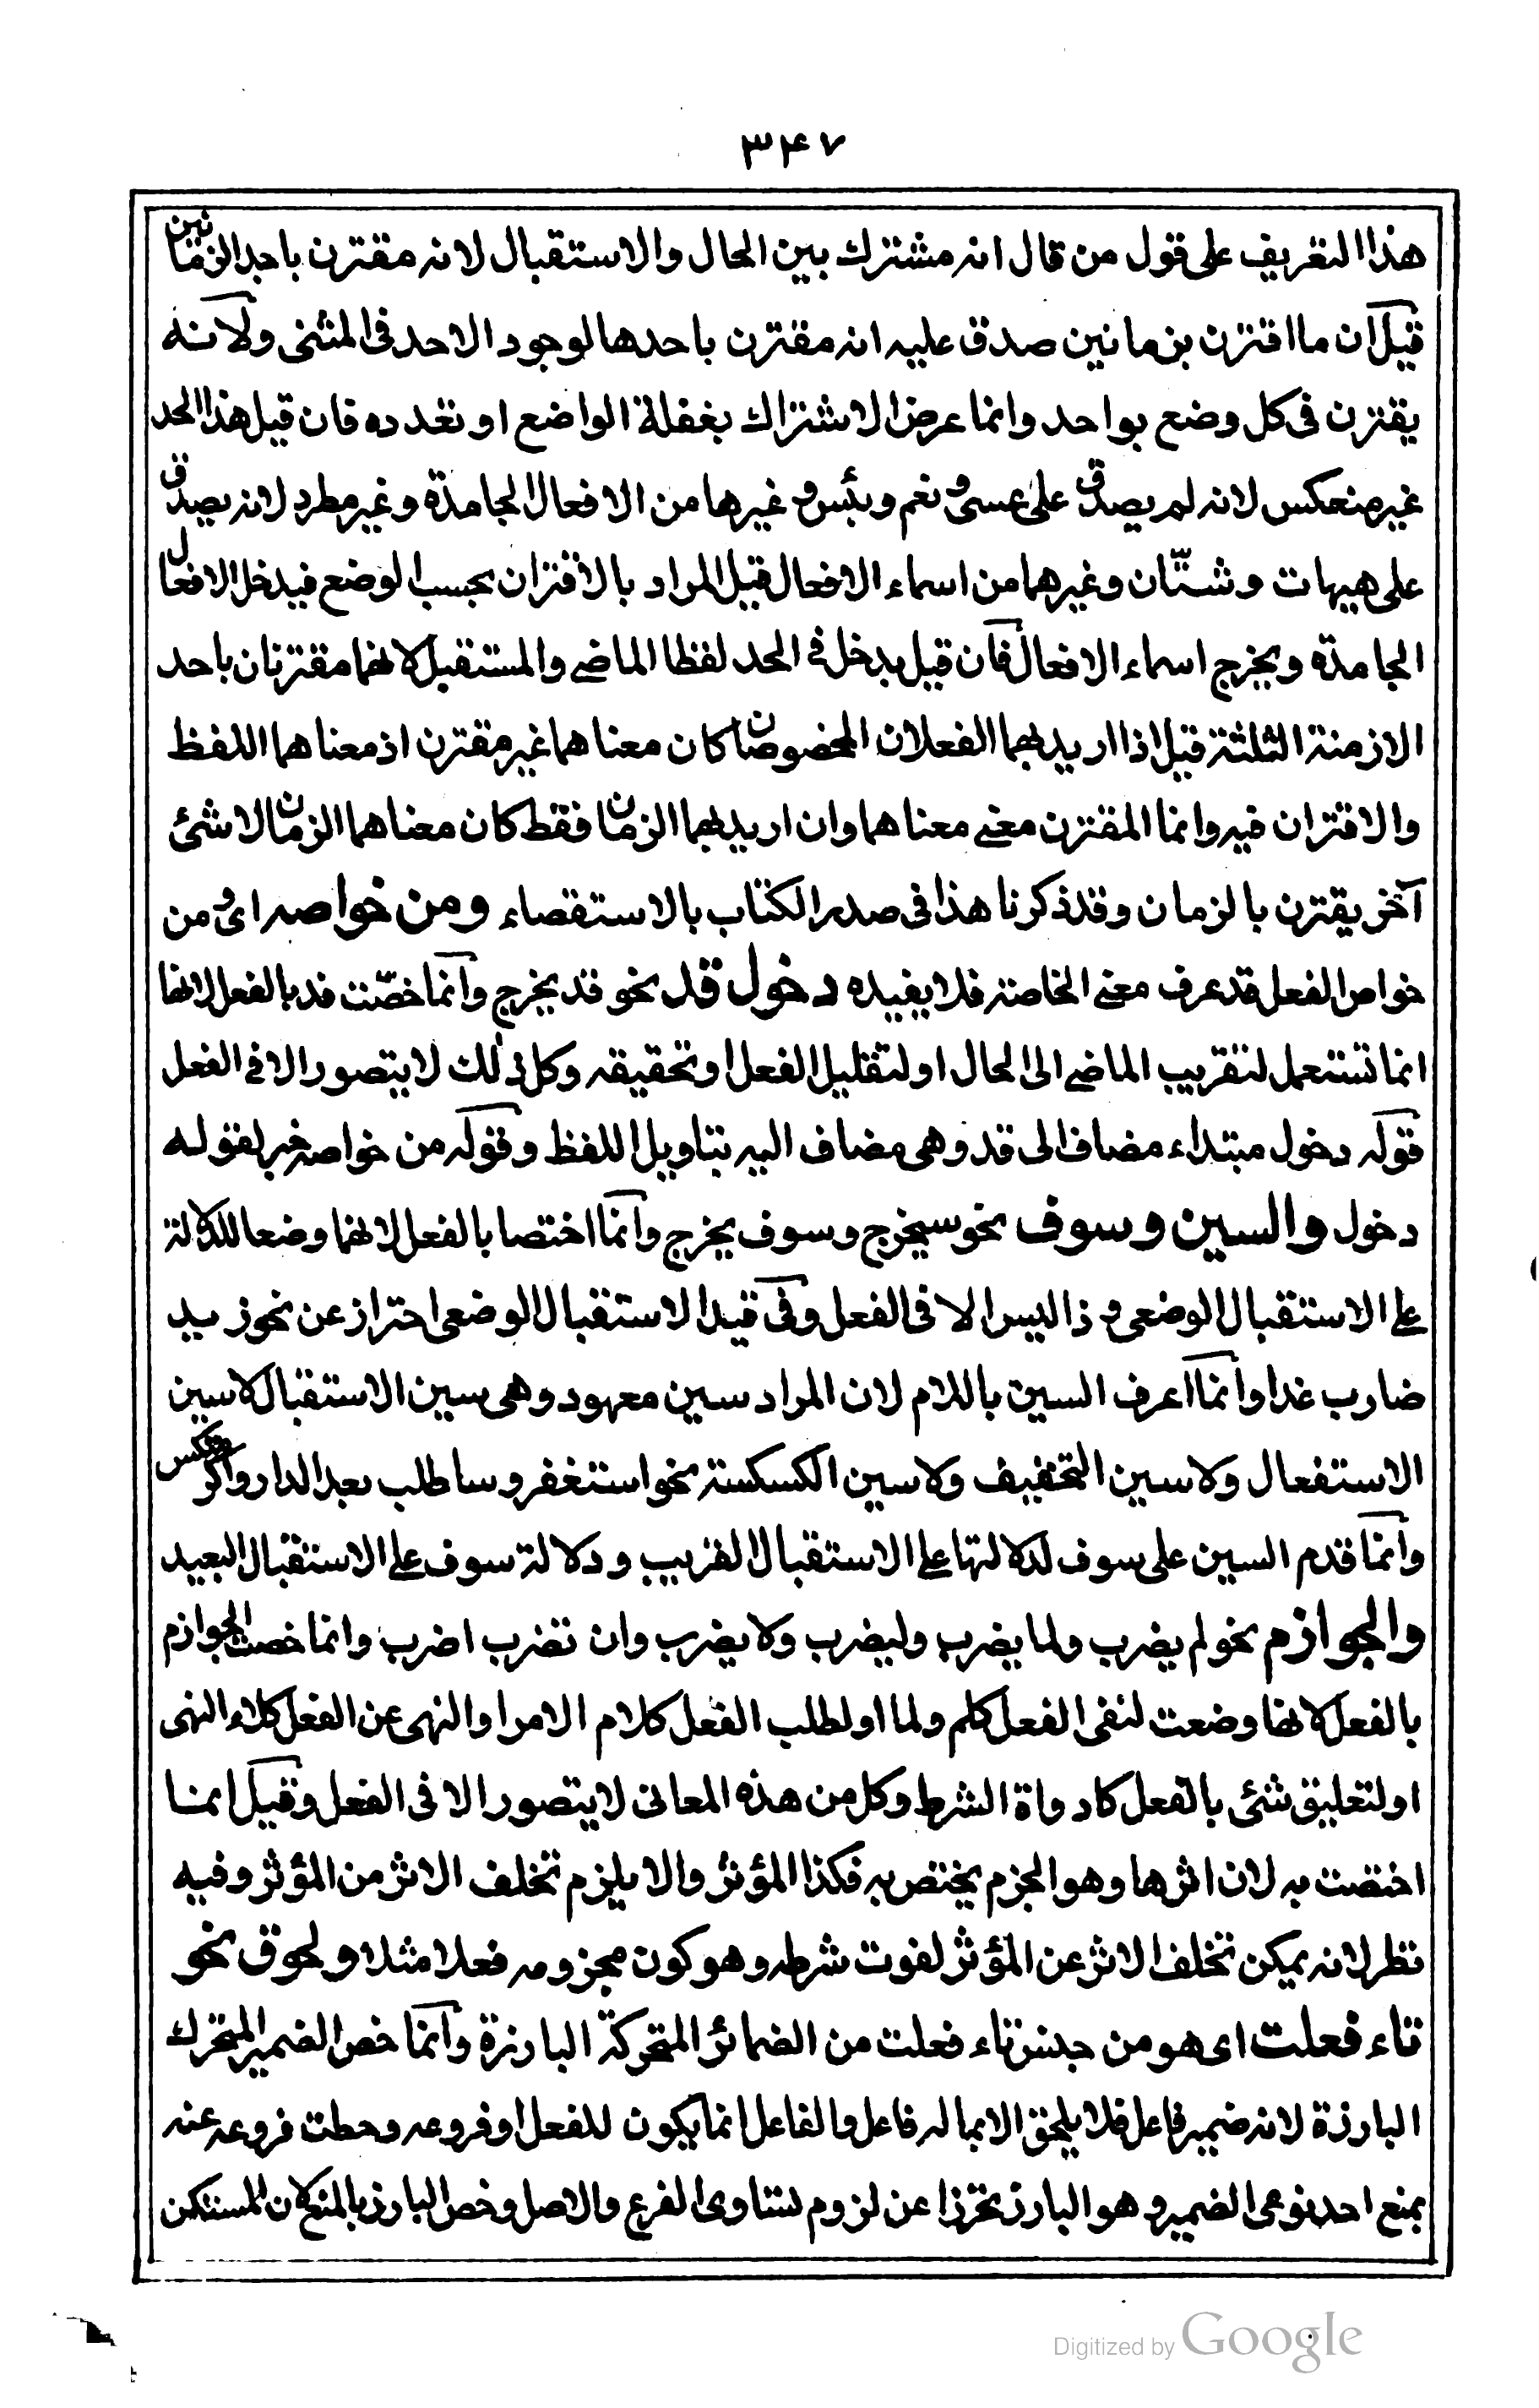 ۳۴۷
هذا التعريف على قول من قال انه مشترك بين الحال والاستقبال لانه مقترن باحد الزمانين
قيل ان ما اقترن بزمانين صدق عليه انه مقترن باحدها لوجود الاحد فى المثنى ولانه
يقترن فى كل وضع بواحد وانما عرض الاشتراك بغفلة الواضع او تعدده فان قيل هذا الحد
غير منعكس لانه لم يصدق على عسى و نعم وبئس و غيرها من الافعال الجامدة وغير مطرد لانه يصدق
على هيهات وشتّان وغيرهما من اسماء الافعال قيل المراد بالاقتران بحسب الوضع فيدخل الافعال
الجامدة ويخرج اسماء الافعال فان قيل يدخل فى الحد لفظا الماضى والمستقبل لانهما مقترنان باحد
الازمنة الثلثة قيل اذا اريد بهما الفعلان المخصوصان كان معناهما غير مقترن اذ معناهما اللفظ
والاقتران فيه وانما المقترن معنى معناهما وان اريد بهما الزمان فقط كان معناهما الزمان لا شئ
آخر يقترن بالزمان وقد ذكرنا هذا فى صدر الكتاب بالاستقصاء ومن خواصه اى و من
خواص الفعل قد عرف معنى الخاصة فلا يفيده دخول قد نحو قد يخرج وانما خصّت قد بالفعل لانها
انما تستعمل لتقريب الماضى الى الحال او لتقليل الفعل او تحقيقه وكل ذلك لا يتصور الا فى الفعل
قوله دخول مبتداء مضاف الى قد وهى مضاف اليه بتاويل اللفظ وقوله من خواصه خبر لقوله
دخول والسين وسوف نحو سيخرج وسوف يخرج وانما اختصا بالفعل لانهما وضعا للدلالة
على الاستقبال الوضعى و ذا ليس الا فى الفعل وفى قيد الاستقبال الوضعى احتراز عن نحو زيد
ضارب غدا وانما اعرف السين باللام لان المراد سين معهود وهى سين الاستقبال لا سين
الاستفعال ولا سين التخفيف ولا سين الكسكسة نحو استغفر وساطلب بعد الدار واكرمتكس
وانما قدم السين على سوف لدلالتها على الاستقبال القريب ودلالة سوف على الاستقبال البعيد
والجوازم نحو لم يضرب ولما يضرب وليضرب ولا يضرب وان تضرب اضرب وانما خصت الجوازم
بالفعل لانها وضعت لنفى الفعل كلم ولما او لطلب الفعل كلام الامر او النهى عن الفعل كلاء النهى
او لتعليق شئ بالفعل كادواة الشرط وكل من هذه المعانى لا يتصور الا فى الفعل وقيل انما
اختصت به لان اثرها وهو الجزم يختص به فكذا المؤثر والا يلزم تخلف الاثر من المؤثر وفيه
نظر لانه يمكن تخلف الاثر عن المؤثر لفوت شرطه وهو كون مجزومه فعلا مثلا ولحوق نحو
تاء فعلت اى هو من جنس تاء فعلت من الضمائر المتحركة البارزة وانما خص الضمير المتحرك
البارزة لانه ضمير فاعل فلا يلحق الا بما له فاعل والفاعل انما يكون للفعل او فروعه وحطت فروعه عنه
بمنع احد نوعى الضمير و هو البارز تحرزا عن لزوم تساوى الفرع والاصل وخص البارز بالمنع لان المستكن
Digitized by Google